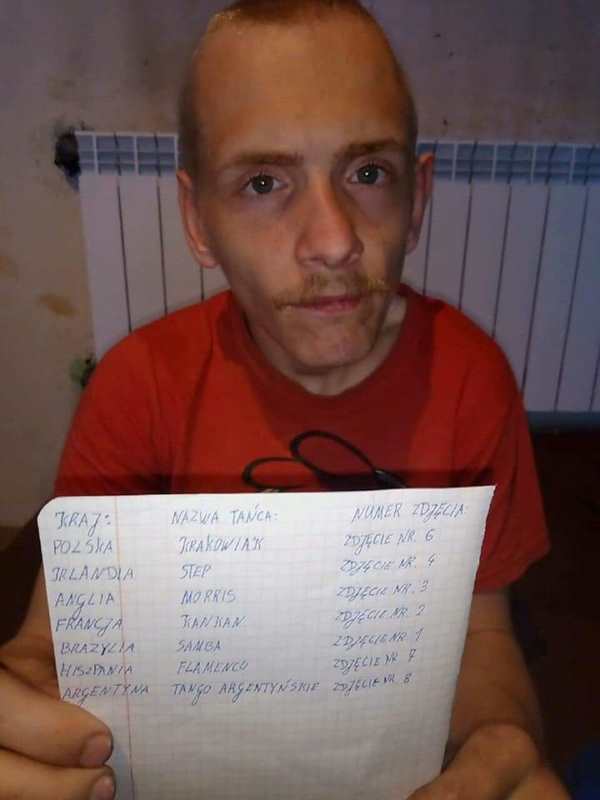 KRAJ: NAZWA TAŃCA: NUMER ZDJĘCIA:
POLSKA KRAKOWIAK ZDJĘCIE NR. 6
IRLANDIA STEP ZDJĘCIE NR. 4
ANGLIA MORRIS ZDJĘCIE NR. 3
FRANCJA KANKAN ZDJĘCIE NR. 2
BRAZYLIA SAMBA ZDJĘCIE NR. 1
HISZPANIA FLAMENCO ZDJĘCIE NR. 7
ARGENTYNA TANGO ARGENTYŃSKIE ZDJĘCIE NR. 8